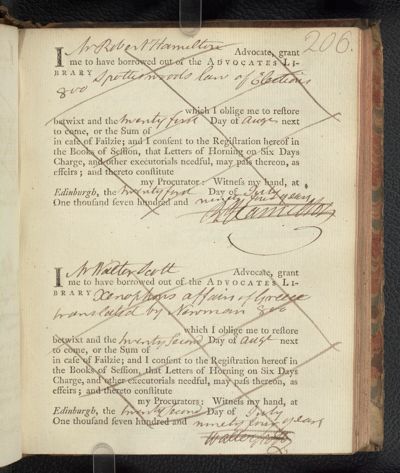 206.
I Mr Robert Hamilton Advocate, grant
me to have borrowed out of the ADVOCATES LI-
BRARY Spottiswoods law of Elections
8vo
which I oblige me to reſtore
betwixt and the twenty first Day of Augt next
to come, or the Sum of
in caſe of Failzie; and I conſent to the Regiſtration hereof in
the Books of Seſſion, that Letters of Horning on Six Days
Charge, and other executorials needful, may paſs thereon, as
effeirs; and thereto conſtitute
my Procurator: Witneſs my hand, at
Edinburgh, the twenty first Day of July
One thouſand ſeven hundred and ninety four years
R Hamilton
I Mr Walter Scott Advocate, grant
me to have borrowed out of the ADVOCATES LI-
BRARY Xenophons affairs of Greece
translated by Newman 8vo
which I oblige me to reſtore
betwixt and the twenty second Day of Augt next
to come, or the Sum of
in caſe of Failzie; and I conſent to the Regiſtration hereof in
the Books of Seſſion, that Letters of Horning on Six Days
Charge, and other executorials needful, may paſs thereon, as
effeirs; and thereto conſtitute
my Procurators: Witneſs my hand, at
Edinburgh, the twenty second Day of July
One thouſand ſeven hundred and ninety four years
Walter Scott